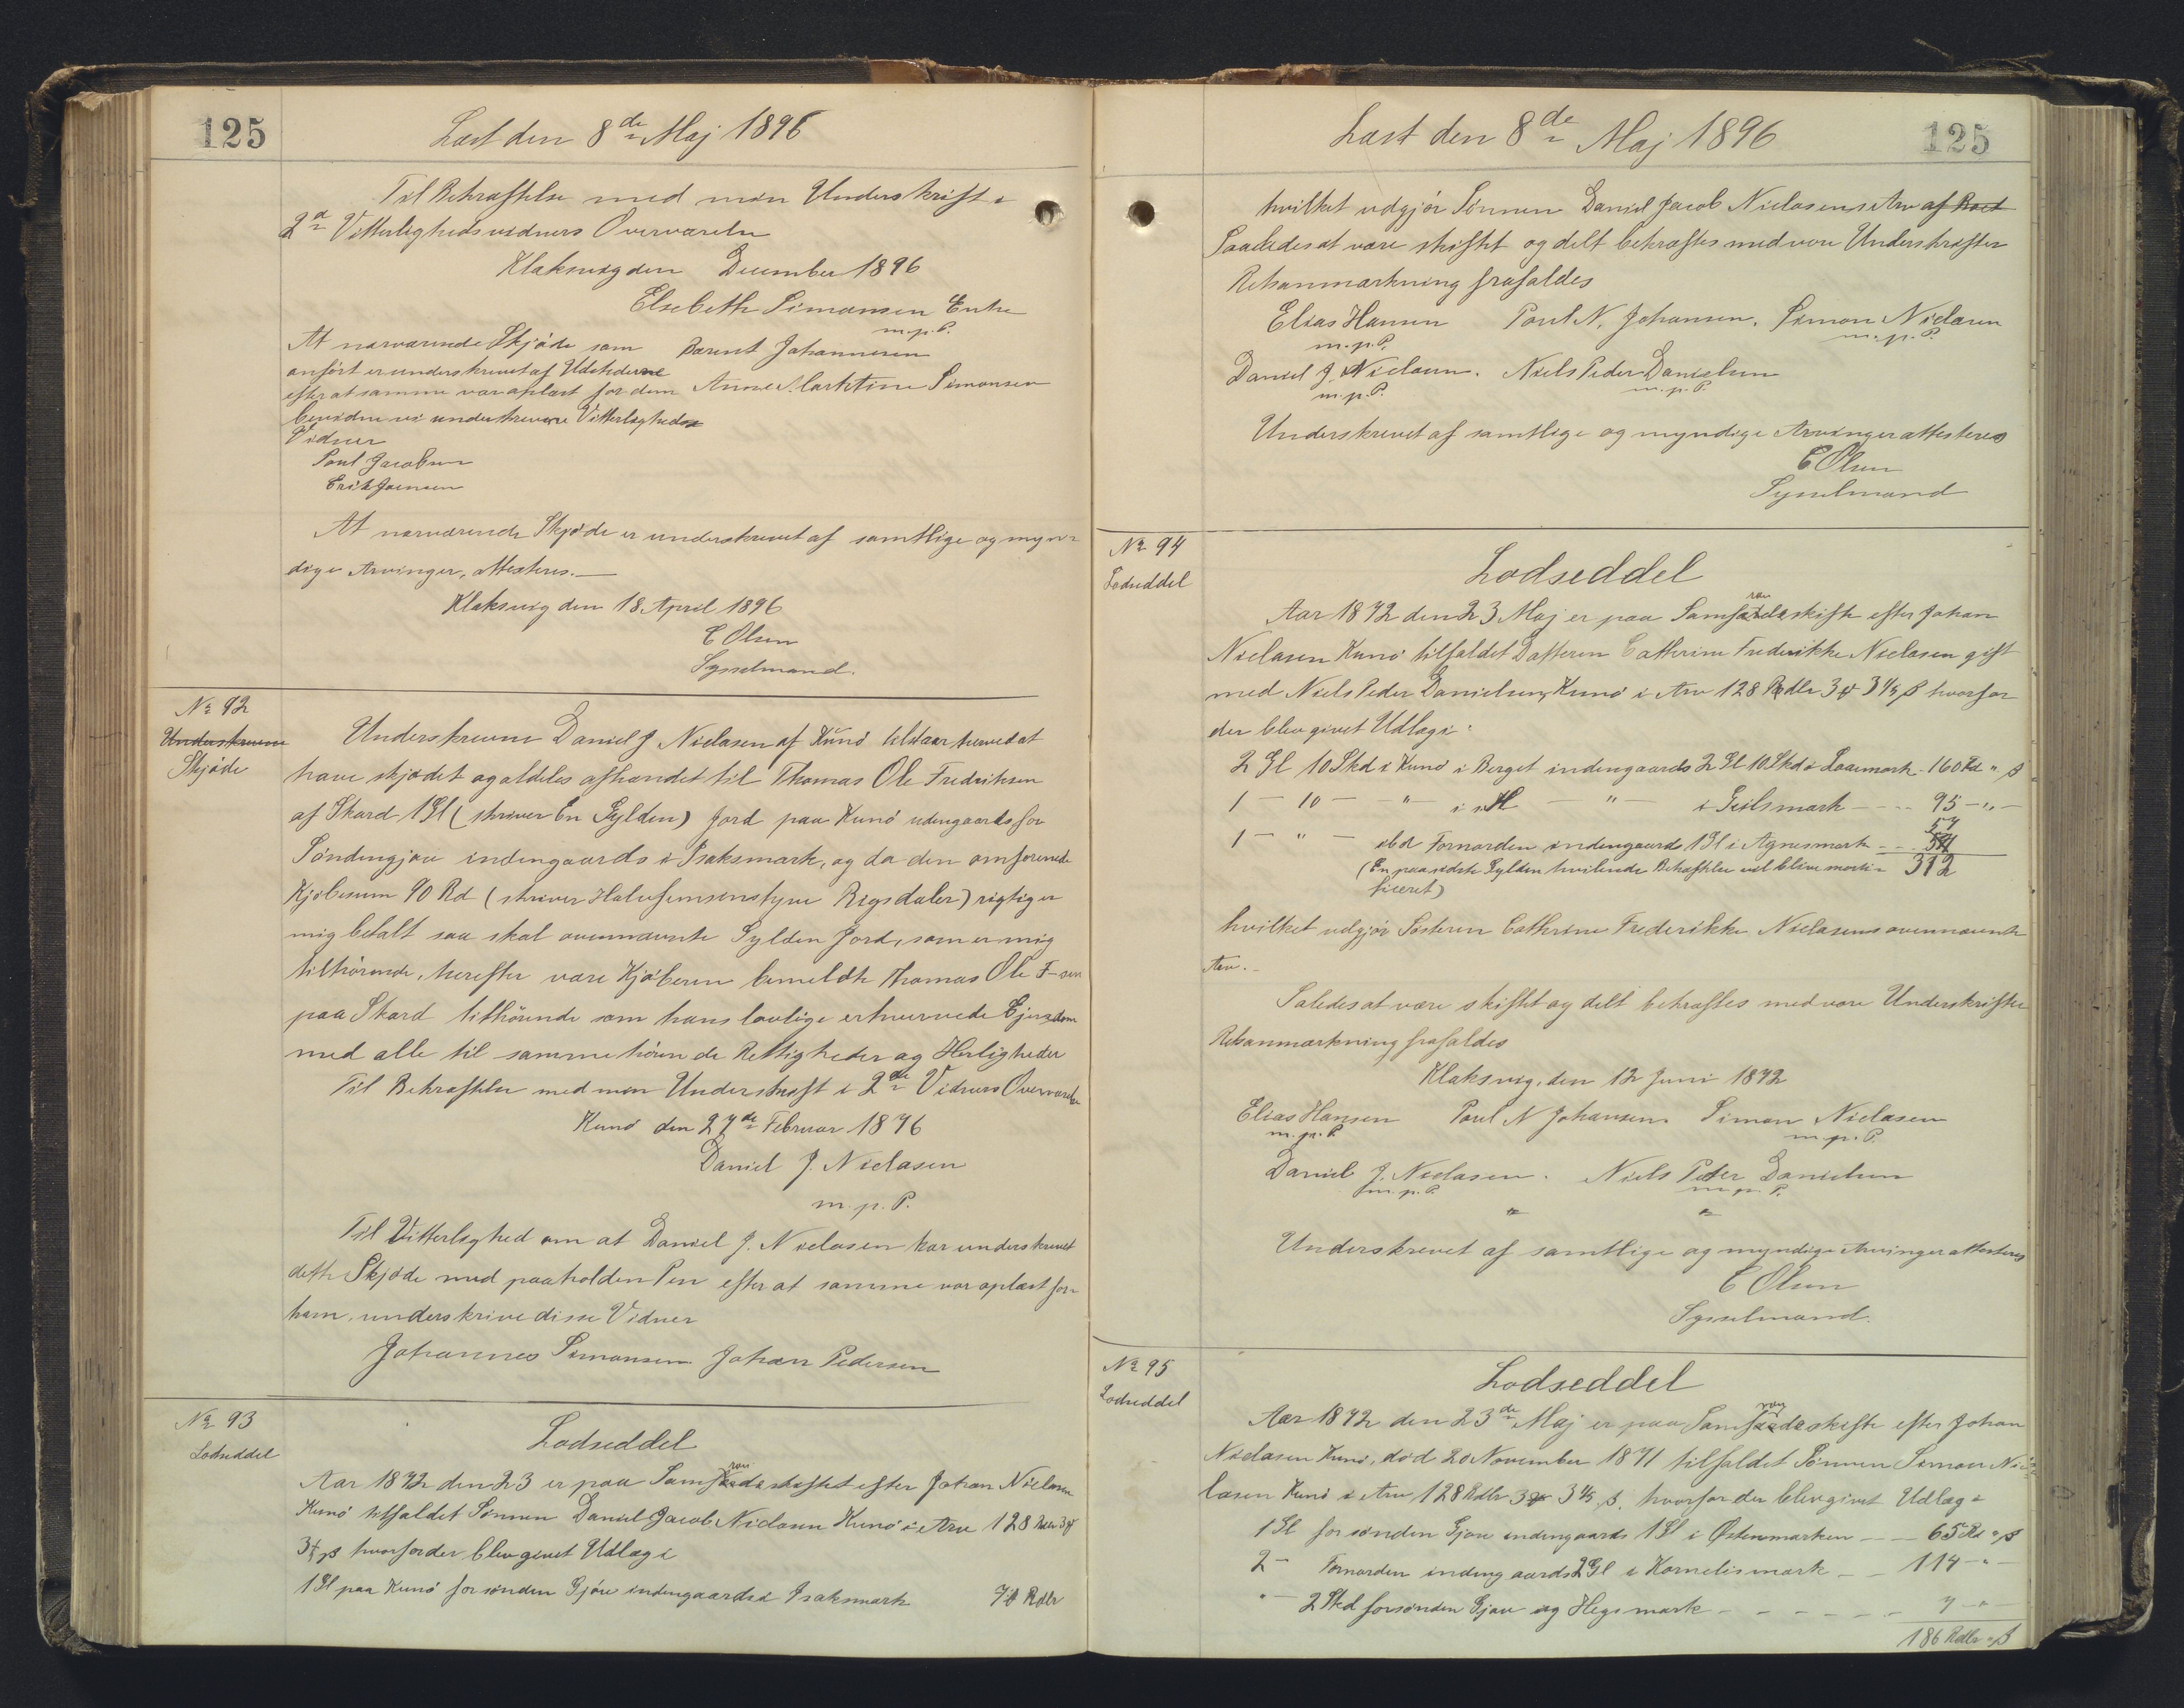 125
Læst den 8de Maj 1896
Til Bekræftelse med min Underskrift i
2de Vitterlighedsvidners Overværelse
Klaksvig den December 1896
Elsebeth Simonsen Enke
m.p.P.
At nærværende Skjøde som
anført er underskrevet af Udstederne
efter at samme var oplæst for dem
bevidne vi underskrevne Vitterligheds
Vidner
Barent Johannesen
Anne Simonsen
Poul Jacobsen
Erik Joensen
At nærværende Skjøde er underskrevet af samtlige og myn-
dige Arvinger, attesteres.—
Klaksvig den 18 April 1896
C Olsen
Sysselmand.
No 92
Underskrevne
Skjøde
Underskrevne Daniel J Nielasen af Kunø tilstaar herved at
have skjødet og aldeles afhændet til Thomas Ole Fredriksen
af Skard 1Gl (skriver En Gylden) Jord paa Kunø udengaards for
Söndengjov indengaards i Isaksmark, og da den omforenede
Kjøbesum 90 Rd (skriver Halvfemsenstyve Rigsdaler) rigtig er
mig betalt saa skal ovennævnte Gylden Jord, som er mig
tilhörende, herefter være Kjøberen bemeldte Thomas Ole F-sen
paa Skard tilhörende som hans lovlige erhvervede Ejendom
med alle til samme hörende Rettigheder og Herligheder
Til Bekræftelse med min Underskrift i 2de Vidners Overværelse
Kunø den 27de Februar 1876
Daniel J. Nielasen
m.p.P.
Til Vitterlighed om at Daniel J. Nielasen har underskrevet
dette Skjøde med paaholden Pen efter at samme var oplæst for
ham, underskrive disse Vidner
Johannes Simonsen Johan Pedersen
No 93
Lodseddel
Lodseddel
Aar 1872 den 23 er paa Samfrændeskiftet efter Johan Nielasen
Kunø tilfaldet Sønnen Daniel Jacob Nielasen Kunø i Arv 128 Rdlr 3 #
3 1/5 ß hvorfor der blev givet Udlæg i
1Gl paa Kunø for sönden Gjóv indengaards i Isaksmark Rdlr
Læst den 8de Maj 1896
125
hvilket udgjör Sönnen Daniel Jacob Nielasens Arv af
Saaledes at være skiftet og delt bekræftes med vore Underskrifter
Retsanmærkning frafaldes
Elias Hansen Poul N. Johansen. Simon Nielasen
m.p.P. m.p.P.
Daniel J. Nielasen. Niels Peder Danielsen
m.p.P. m.p.P.
Underskrevet af samtlige og myndige Arvinger attesteres
C Olsen
Sysselmand
No 94
Lodseddel
Lodseddel
Aar 1872 den 23 Maj er paa Samfrændeskifte efter Johan
Nielasen Kunø tilfaldet Datteren Catherine Frederikke Nielasen gift
med Niels Peder Danielsen, Kunø i Arv 128 Rdlr 3 # 3 1/5 ß hvorfor
der blev givet Udlæg i:
2 Gl 10 Skd i Kunø i Berget indengaards 2 Gl 10 Skd i Laaemark - 160 Rd " ß
1 — 10 — — " — — " — i Geilsmark - - - 95 — " —
1 — " — ibd Fornorden indengaards 1 Gl i Agnesmark - - - 57
(En paa sidste Gylden hvilende Behæftelse vil blive morti- 312
ficeret)
hvilket udgjör Søsteren Cathrine Frederikke Nielasens ovennævnte
Arv.—
Saledes at være skiftet og delt bekræftes med vore Underskrifter
Retsanmærkning frafaldes
Klaksvig, den 12 Juni 1872
Elias Hansen Poul N Johansen Simon Nielasen
m.p.P. m.p.P.
Daniel J. Nielasen. Niels Peder Danielsen
m.p.P. m.p.P.
Underskrevet af samtlige og myndige Arvinger attesteres
C Olsen
Sysselmand.
No 95
Lodseddel
Lodseddel
Aar 1872 den 23de Maj er paa Samfrændeskifte efter Johan
Nielasen Kunø, død 20 November 1871 tilfaldet Sönnen Simon Nie-
lasen Kunø i Arv 128 Rdlr 3 # 3 1/5 ß, hvorfor der blev givet Udlæg i
1 Gl for sönden Gjov indengaards 1 Gl i Østenmarken — — 65 Rd " ß
2 — Fornorden indengaards 2 Gl i Kornelismark — — 114 — " —
" — 2 Skd forsönden Gjov og Hegsmark - - - - - - 7 — " —
186 Rdlr " ß